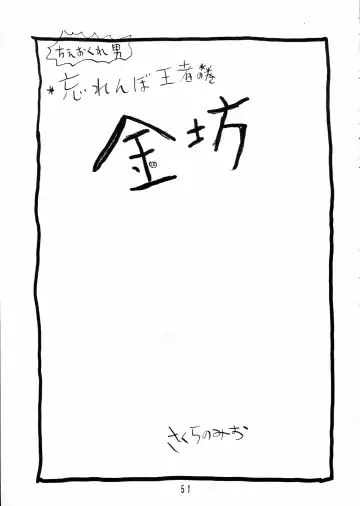 ちえおくれ男
*忘れんぼ王者の巻
金坊
さくらのみお
51